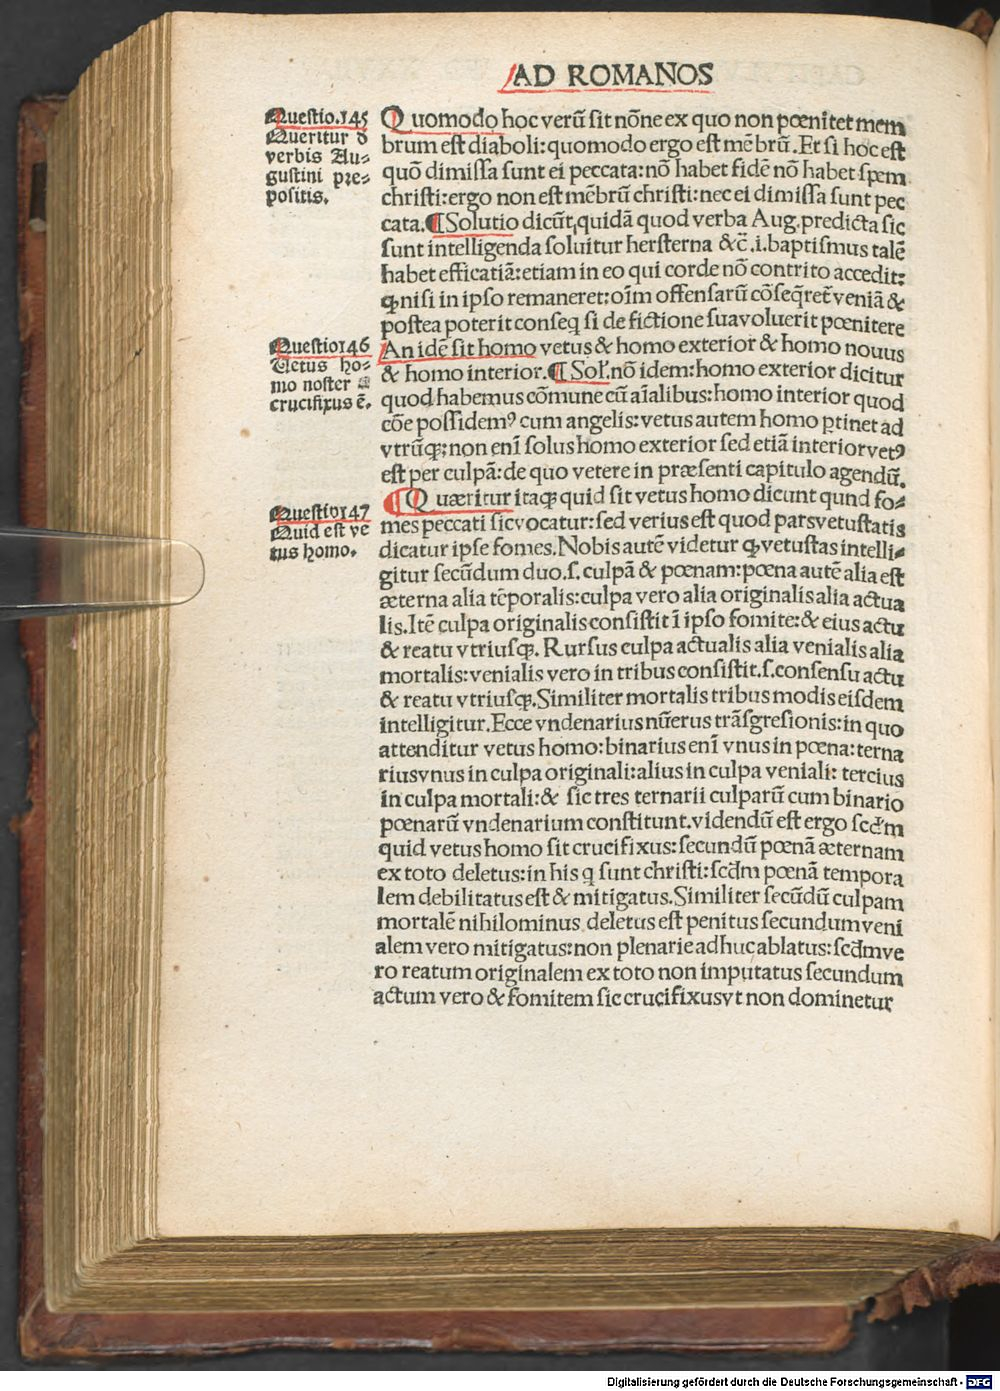 AD ROMANOS
Questio.145
Queritur d
verbis Au-
gustini pre-
positis.
Quomodo hoc verũ sit nõne ex quo non pœnitet mem
brum est diaboli: quomodo ergo est mẽbrũ. Et si hoc est
quõ dimissa sunt ei peccata: nõ habet fidẽ nõ habet spem
christi: ergo non est mẽbrũ christi: nec ei dimissa sunt pec
cata. ¶ Solutio dicũt quidã quod verba Aug. predicta sic
sunt intelligenda soluitur hersterna &c̃.i. baptismus talẽ
habet efficatiã: etiam in eo qui corde nõ contrito accedit:
ꝙ nisi in ipso remaneret: oĩm offensarũ cõseq̃ret̃ veniã &
postea poterit conseq si de fictione sua voluerit pœnitere
Questio146
Vetus ho-
mo noster
crucifixus ẽ.
An idẽ sit homo vetus & homo exterior & homo nouus
& homo interior. ¶ Sol̃. nõ idem: homo exterior dicitur
quod habemus cõmune cũ aĩalibus: homo interior quod
cõe possidemꝰ cum angelis: vetus autem homo ꝑtinet ad
vtrũqꝫ: non enĩ solus homo exterior sed etiã interior vetꝰ
est per culpã: de quo vetere in præsenti capitulo agendũ.
Questio147
Quid est ve
tus homo.
¶ Quæritur itaqꝫ quid sit vetus homo dicunt qund fo-
mes peccati sic vocatur: sed verius est quod pars vetustatis
dicatur ipse fomes. Nobis autẽ videtur ꝙ vetustas intelli-
gitur secũdum duo.s. culpã & pœnam: pœna autẽ alia est
æterna alia tẽporalis: culpa vero alia originalis alia actua
lis. Itẽ culpa originalis consistit ĩ ipso fomite: & eius actu
& reatu vtriusqꝫ. Rursus culpa actualis alia venialis alia
mortalis: venialis vero in tribus consistit.s. consensu actu
& reatu vtriusqꝫ. Similiter mortalis tribus modis eisdem
intelligitur. Ecce vndenarius nũerus trãsgresionis: in quo
attenditur vetus homo: binarius enĩ vnus in pœna: terna
rius vnus in culpa originali: alius in culpa veniali: tercius
in culpa mortali: & sic tres ternarii culparũ cum binario
pœnarũ vndenarium constitunt. videndũ est ergo scd̃m
quid vetus homo sit crucifixus: secundũ pœnã æternam
ex toto deletus: in his q sunt christi: scd̃m pœnã tempora
lem debilitatus est & mitigatus. Similiter secũdũ culpam
mortalẽ nihilominus deletus est penitus secundum veni
alem vero mitigatus: non plenarie adhuc ablatus: scd̃m ve
ro reatum originalem ex toto non imputatus secundum
actum vero & fomitem sic crucifixus vt non dominetur
Digitalisierung gefördert durch die Deutsche Forschungsgemeinschaft - DFG